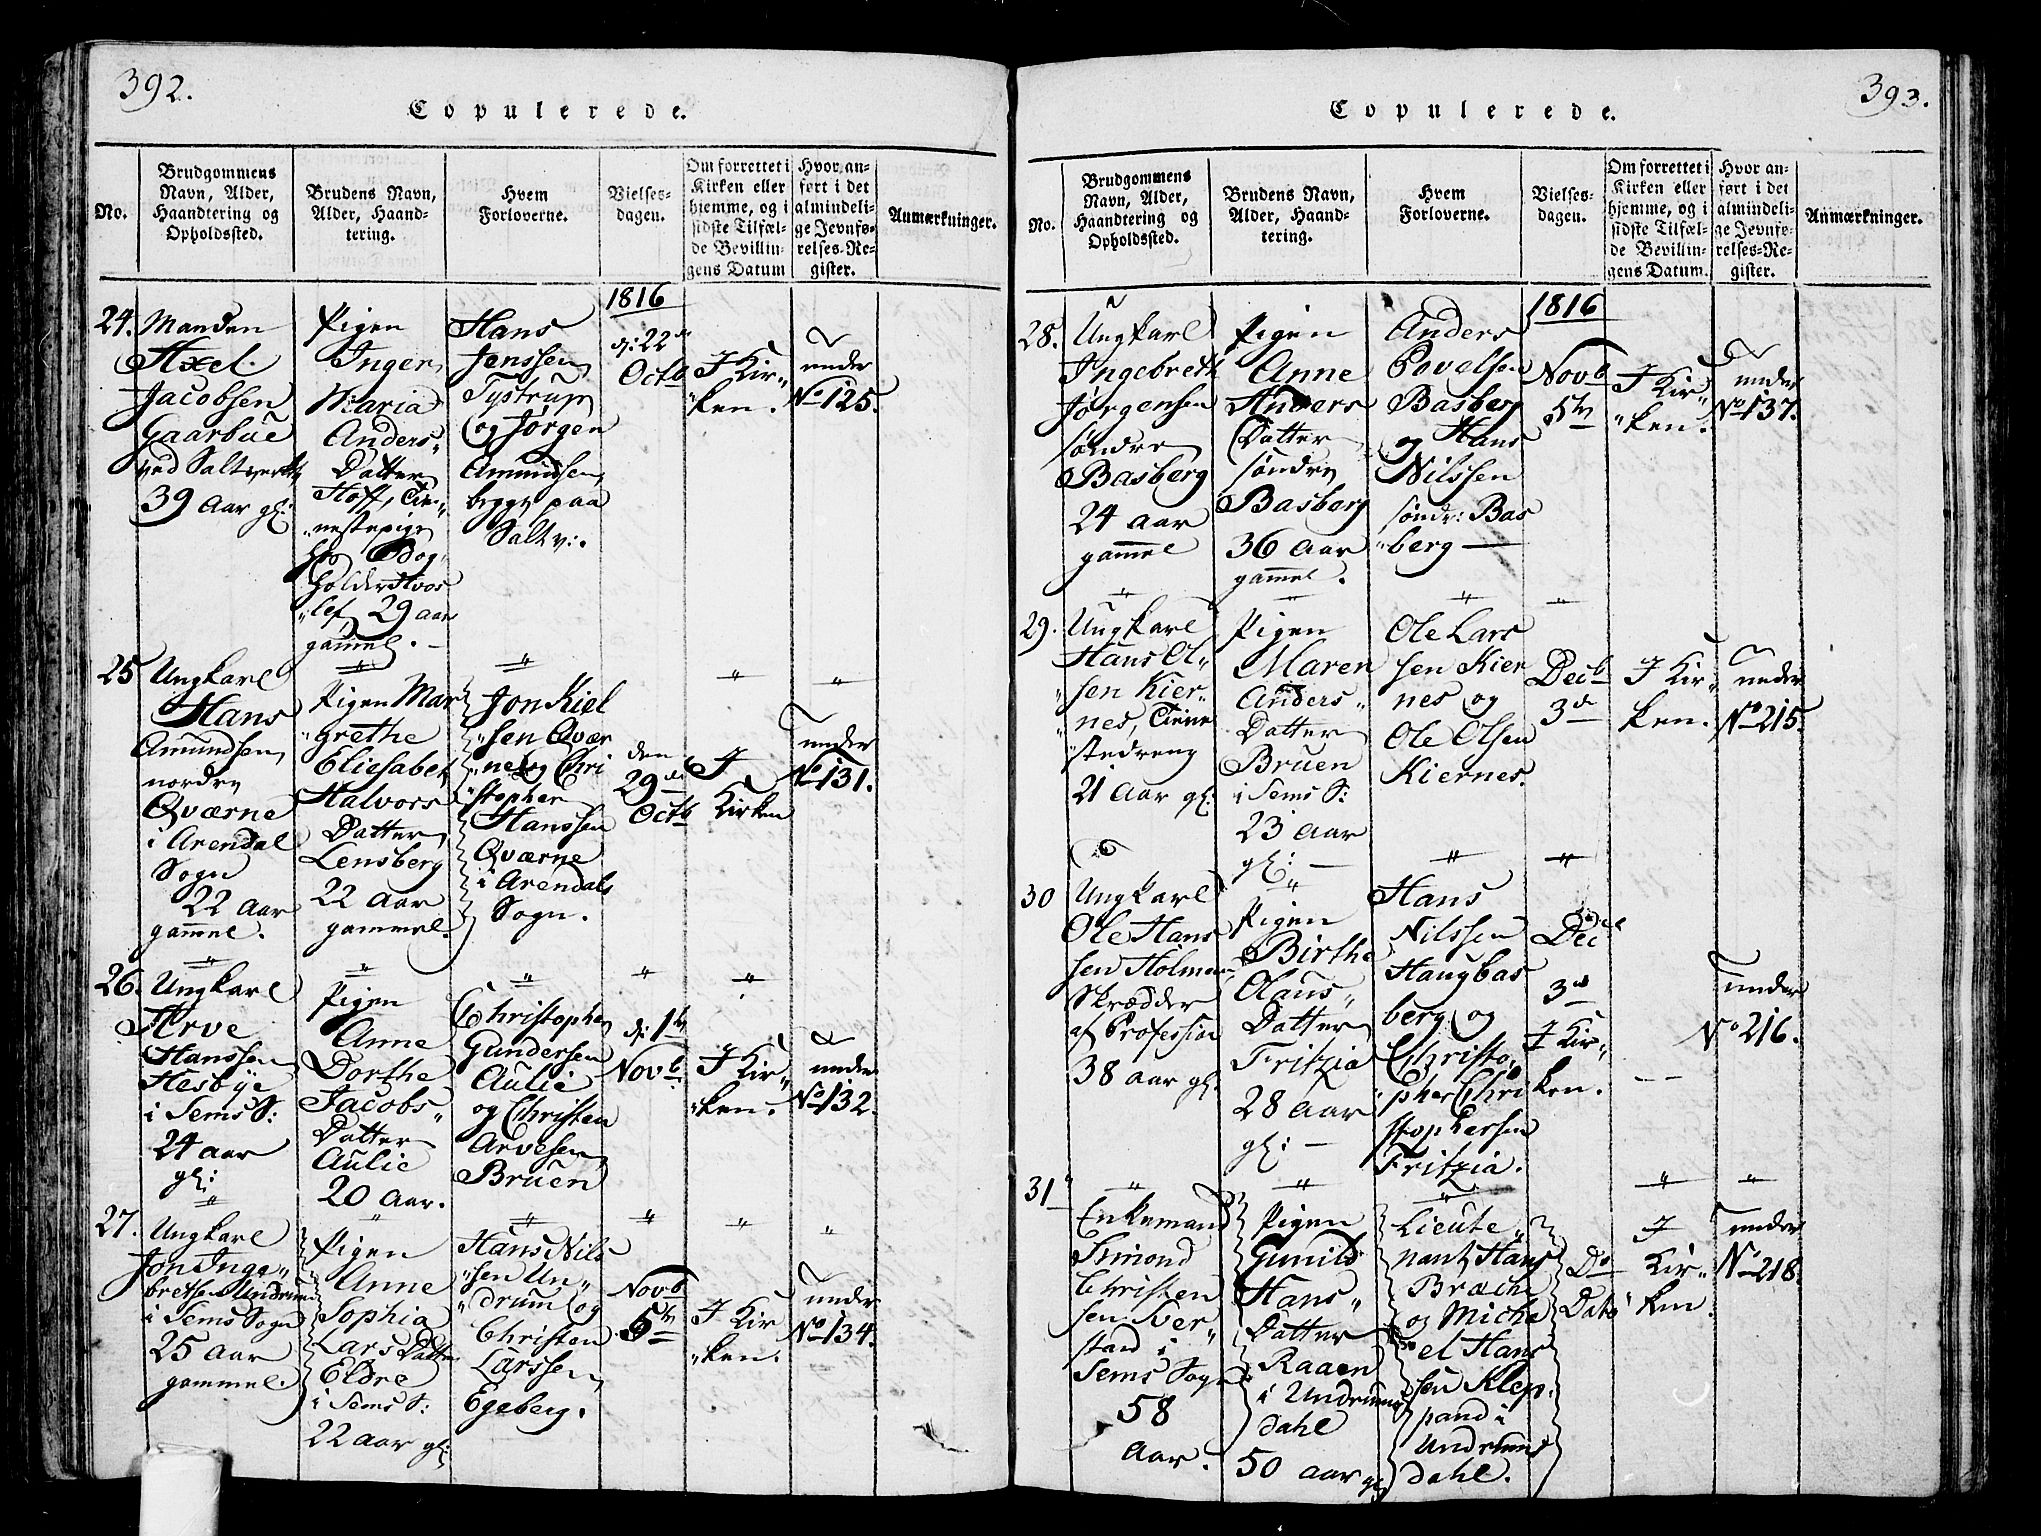 392.
Copulerede.
No.
Brudgommens
Navn, Alder,
Haandtering og
Opholdssted.
Brudens Navn,
Alder, Haand-
tering.
Hvem
Forloverne.
Vielses-
dagen.
Om forrettet i
Kirken eller
hjemme, og i
sidste Tilfæl-
de Bevillin-
gens Datum
Hvor an-
ført i det
almindeli-
ge Jevnfø-
relses-Re-
gister.
Anmærkninger.
1816
24.
Manden
Axel
Jacobsen
Gaarbue
ved Saltverket
39 Aar gl:
Pigen
Inger
Maria
Anders„
Datter
Hoff, Tie„
„nestepige
hos Bog„
holder Hvos
„lef, 29 aar
gammel.
Hans
Jenssen
Tystrup
og Jørgen
Amundsen
begge paa
Saltv:.
d: 22de
Octb
I Kir„
„ken.
under
No 125.
25
Ungkarl
Hans
Amundsen
nordre
Qværne
i Arendal
Sogn
22 Aar
gammel.
Pigen Mar
„grethe
Eliesabet
Halvors
Datter
Lensberg
22 Aar
gammel.
Jon Kiel
„sen Qvær
„ne og Chri
„stopher
Hanssen
Qværne
i Arendals
Sogn.
den
29de
Octb
I
Kirken
under
No 131.
26.
Ungkarl
Arve
Hanssen
Hesbye
i Sems S:
24 aar
gl:
Pigen
Anne
Dorthe
Jacobs„
Datter
Aulie
20 Aar.
Christopher
Gundersen
Aulie
og Christen
Arvesen
Bruen
d: 1te
Novb
I Kir„
„ken.
under
No 132.
27.
Ungkarl
Jon Inge„
bretsen Undrum
i Sems Sogn
25 Aar
gammel.
Pigen
Anne
Sophia
Lars Datter
Eldre
i Sems S:
22 aar gl:
Hans Nils
„sen Un„
„drum og
Christen
Larssen
Egeberg.
Novb
5te
I Kir
„ken.
under
No 134.
393.
Copulerede.
No.
Brudgommens
Navn, Alder,
Haandtering og
Opholdssted.
Brudens Navn,
Alder, Haand-
tering.
Hvem
Forloverne.
Vielses-
dagen.
Om forrettet i
Kirken eller
hjemme, og i
sidste Tilfæl-
de Bevillin-
gens Datum.
Hvor an-
ført i det
almindeli-
ge Jevnfø-
relses-Re-
gister.
Anmærkninger.
1816
28.
Ungkarl
Ingebreth
Jørgensen
søndre
Basberg
24 aar
gammel
Pigen
Anne
Anders
Datter
søndre
Basberg
36 Aar
gammel.
Anders
Povelsen
Basberg
og Hans
Nilssen
søndr: Bas
„berg
Novb
5te
I Kir„
„ken.
under
No 137.
29.
Ungkarl
Hans Ol„
„sen Kier„
„nes, Tiene
„stedreng
21 Aar gl:
Pigen
Maren
Anders„
Datter
Bruen
i Sems S:
23 aar
gl:
Ole Lars
sen Kier
nes og
Ole Olsen
Kiernes.
Decb
3de
I Kir„
ken.
under
No 215.
30
Ungkarl
Ole Hans
sen Holmen
Skrædder
af Profession
38 aar gl:
Pigen
Birthe
Olaus„
Datter
Fritzia
28 Aar
gl:
Hans
Nilssen
Haugbas
berg og
Christo„
„pher Chri
stophersen
Fritzia.
Decb
3de
I Kir„
ken.
under
No 216.
31
Enkemand
Simond
Christen
sen Sver„
stad i
Sems Sogn
58
Aar.
Pigen
Gunild
Hans„
Datter
Raaen
i Undrums
dahl
50 aar gl
Lieute„
nant Hans
Bræch
og Micha
el Hans
sen Klep„
pand i
Undrums
dahl.
Do
Dato
I
Kir„
ken.
under
No 218.